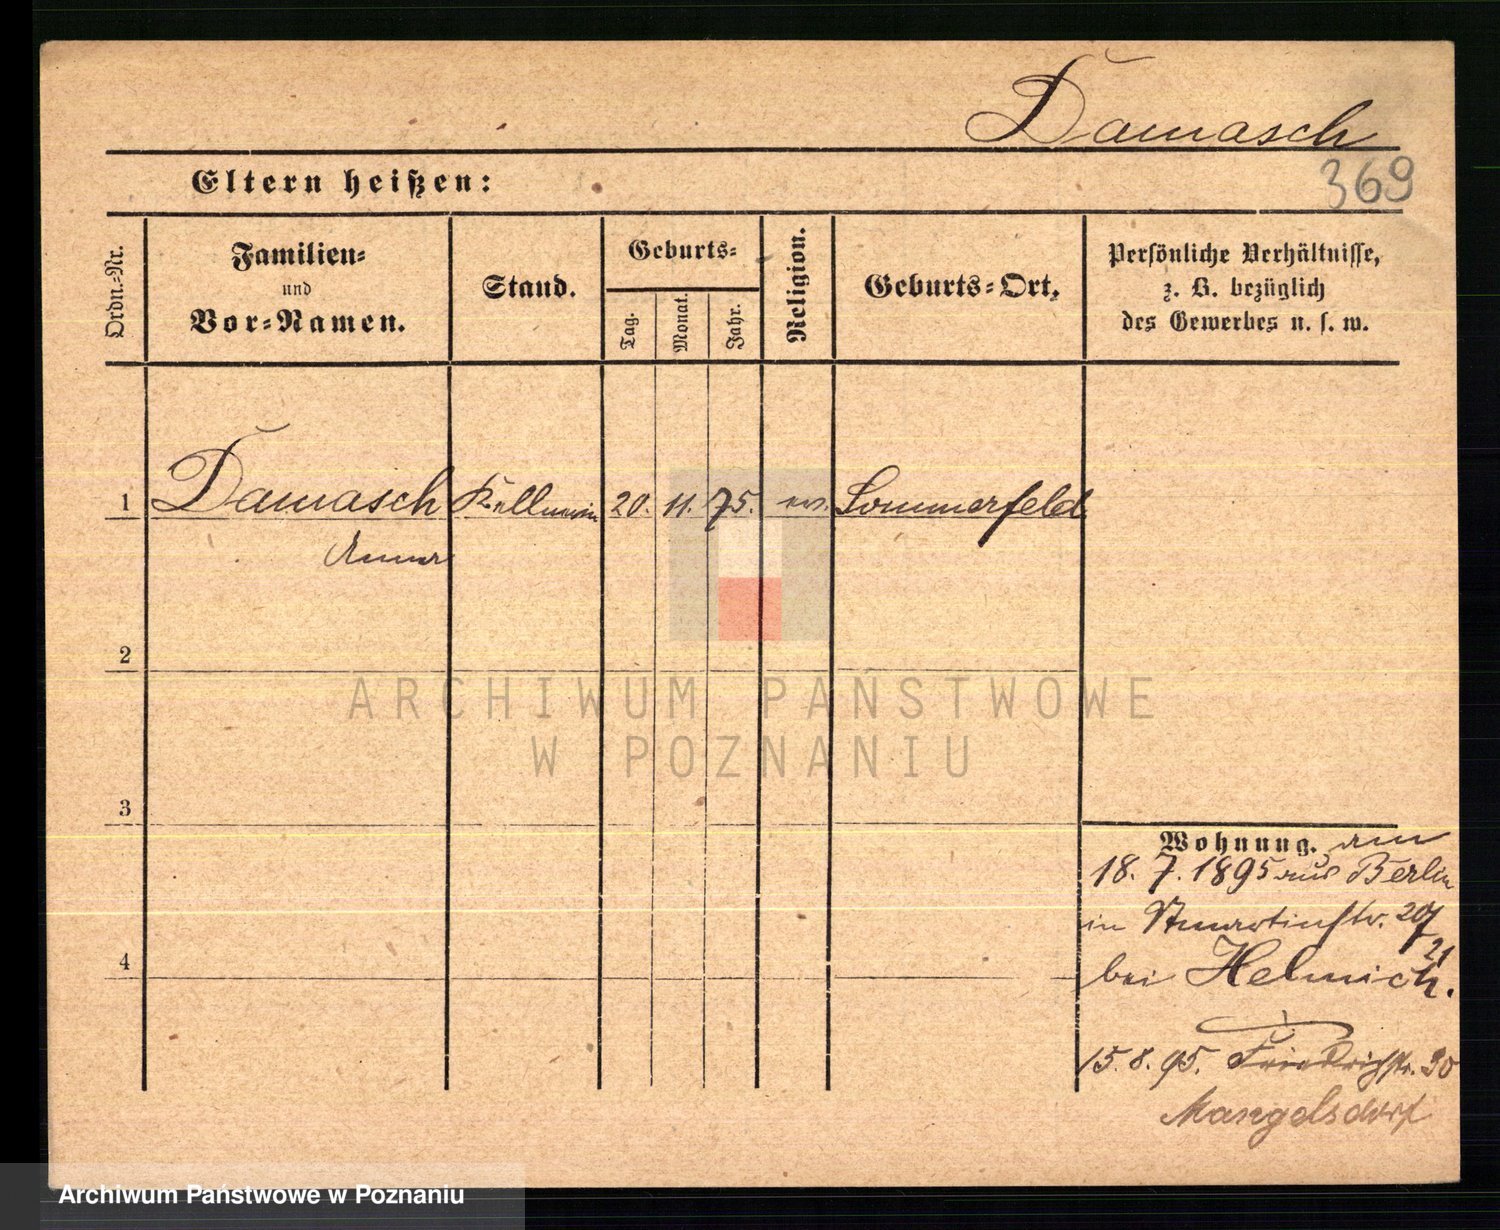 Damasch
369
Eltern heißen:
Ordn.-Nr.
Familien-
und
Vor-Namen.
Stand.
Geburts-
Tag.
Monat.
Jahr.
Religion.
Geburts-Ort,
Persönliche Verhältnisse,
z. B. bezüglich
des Gewerbes u. s. w.
1 Damasch Kellnerin 20. 11. 75. ev. Sommerfeld
Anna
2
ARCHIWUM PAŃSTWOWE
W POZNANIU
3
Wohnung. am
18. 7. 1895 aus Berlin
in Stmartinstr. 20/
21
4
bei Helmich.
15. 8. 95. Friedrichstr. 30
Mangelsdorf
Archiwum Państwowe w Poznaniu